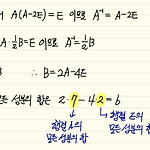 A(A-2E)=E 이므로 A⁻¹=A-2E
A·½B=E 이므로 A⁻¹=½B
∴ B=2A-4E
모든 성분의 합은 2·7-4·2=6
행렬 A의 행렬 E의
모든 성분의 합 모든 성분의 합